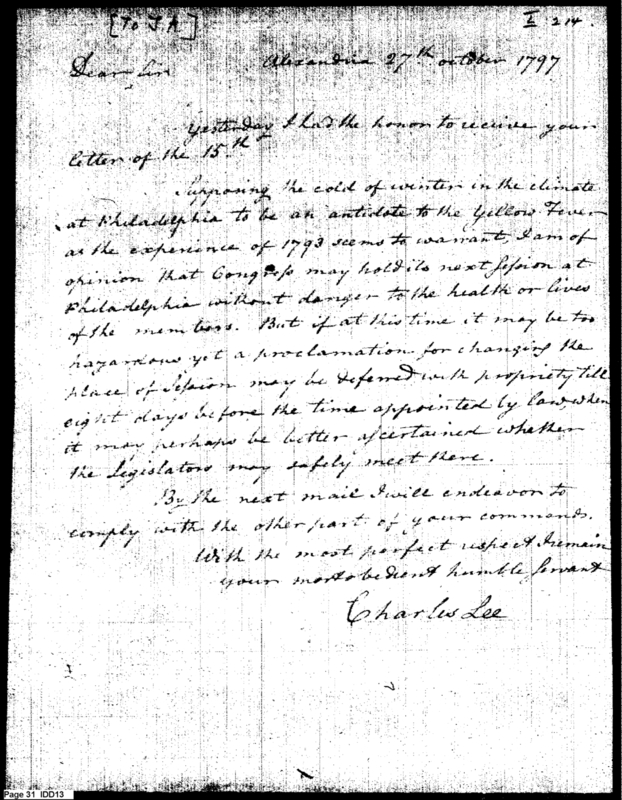 [To J A]
I 214.
Alexandria 27th october 1797
Dear Sir
Yesterday I had the honor to receive your
letter of the 15th
Supposing the cold of winter in the climate
at Philadelphia to be an antidote to the Yellow Fever
as the experience of 1793 seems to warrant, I am of
opinion that Congress may hold its next Session at
Philadelphia without danger to the health or lives
of the members. But if at this time it may be too
hazardous yet a proclamation for changing the
place of Session may be deferred with propriety till
eight days before the time appointed by law when
it may perhaps be better ascertained whether
the Legislators may safely meet there.
By the next mail I will endeavor to
comply with the other part of your commands.
With the most perfect respect I remain
your most obedient humble Servant
Charles Lee
Page 31 IDD13